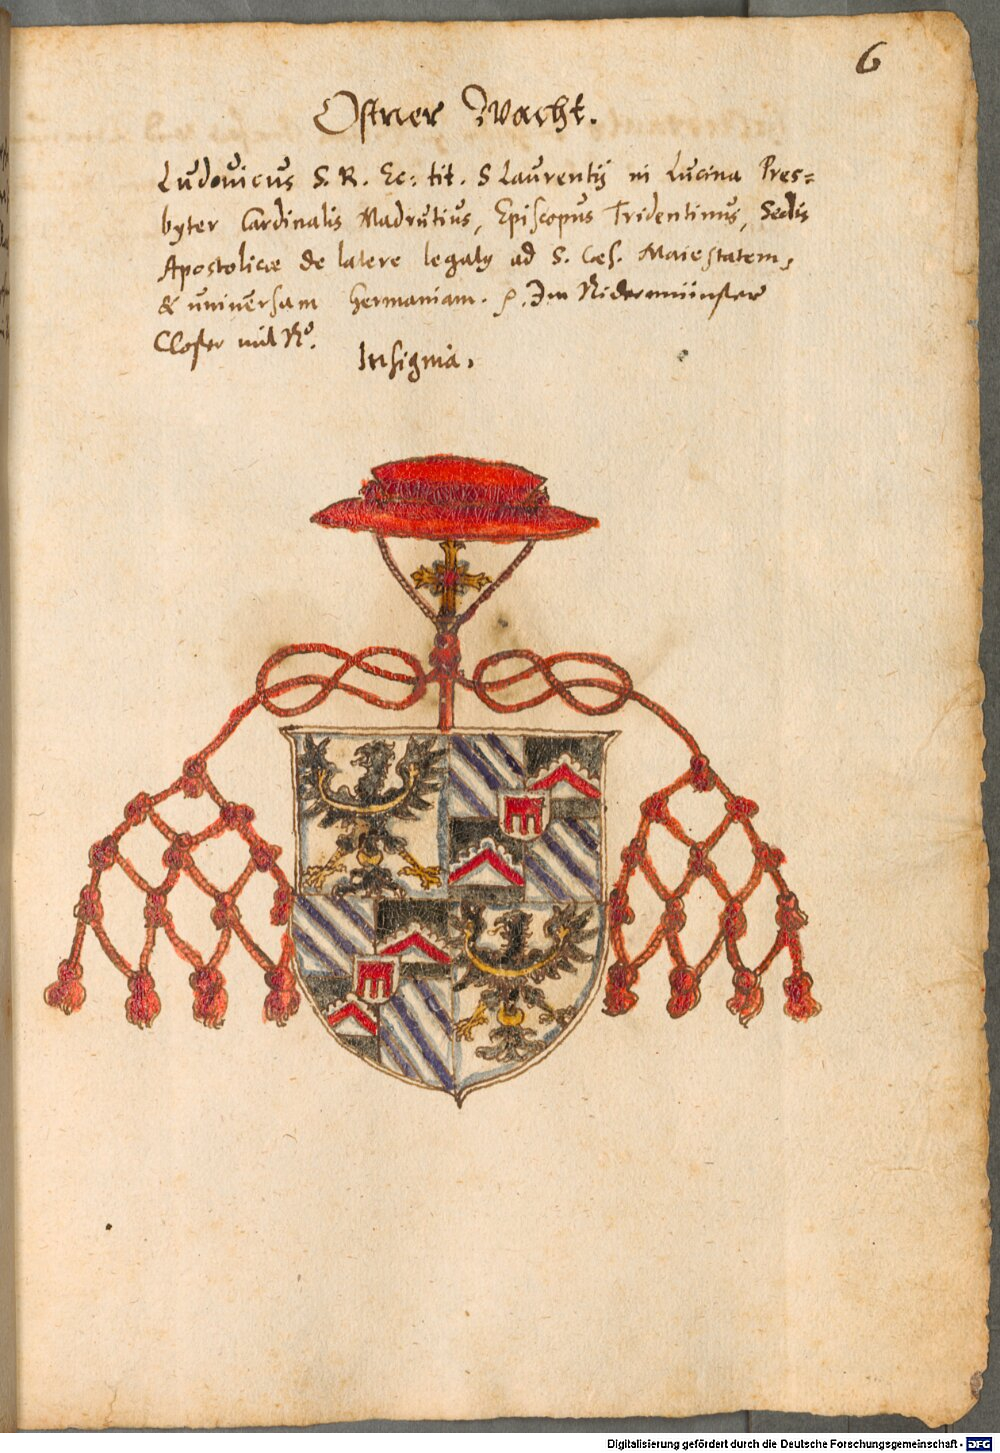 6
Ostner Wacht.
Ludovicus S. R. Ec: tit. S Laurentij in Lucina Pres=
byter Cardinalis Madrutius, Episcopus Tridentinus, Sedis
Apostolicæ de latere legatꝯ ad S. Cæs. Maiestatem,
& universam Germaniam. p. Im Nidermünster
Closter mit Nº.
Insignia.
Digitalisierung gefördert durch die Deutsche Forschungsgemeinschaft - DFG